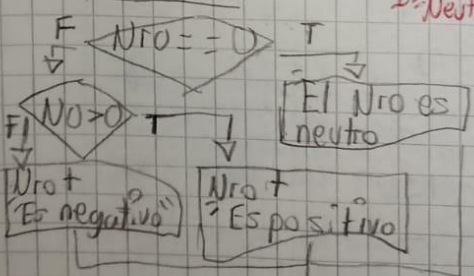 =Neut
F
Nro==0
T
El Nro es
neutro
F
No>0
T
Nro+
"Es negativo"
Nro+
"Es positivo